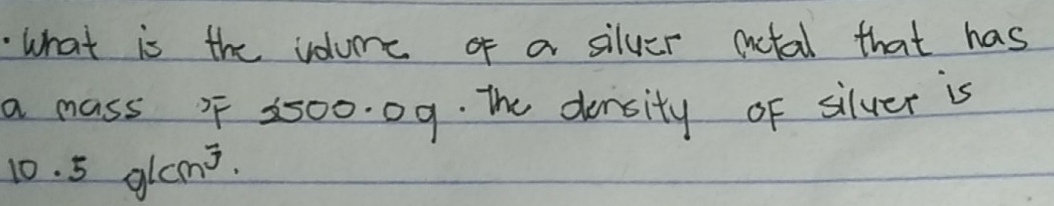 · What is the volume of a silver metal that has
a mass of 2500.0g. The density of silver is
10.5 g/cm³.